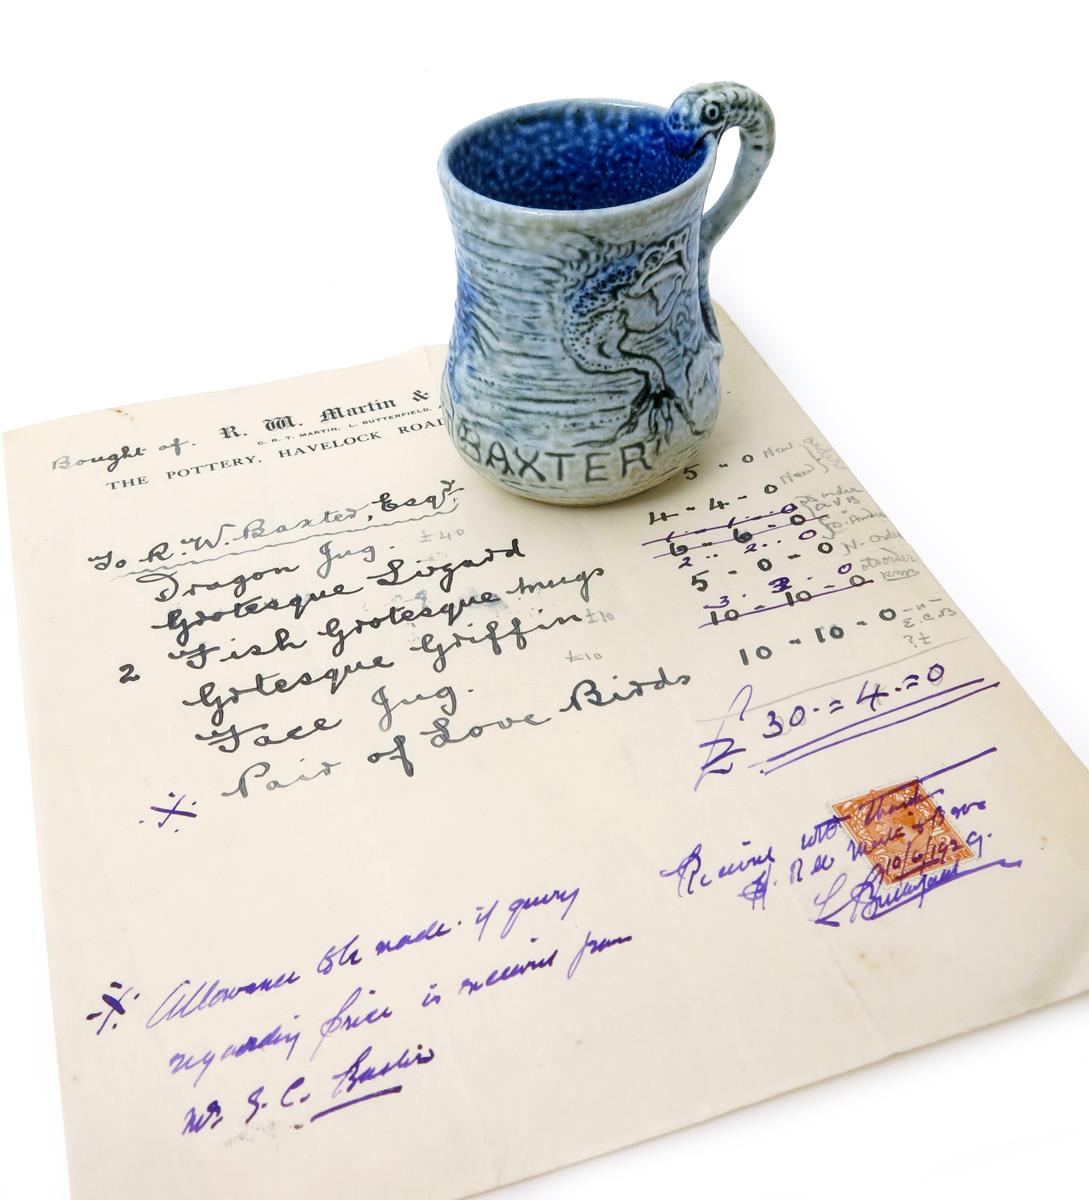 BAXTER
Bought of. R. W. Martin &
C. R. T. MARTIN, L. BUTTERFIELD,
THE POTTERY, HAVELOCK ROAD
To R. W. Baxter, Esqr.
5 - 0 New
Dragon Jug. £40 4 - 4 - 0 New
Grotesque Lizard 6 - 6 - 0
2 Fish Grotesque mugs 5 - 0 - 0
Grotesque Griffin £10 10 - 10 - 0
Face Jug. £10 10 - 10 - 0
Pair of Love Birds
£30 = 4 = 0
Received with thanks
10/6/1929.
L Butterfield
Allowance to be made if query
regarding price is received from
Mr. E. C. Baxter